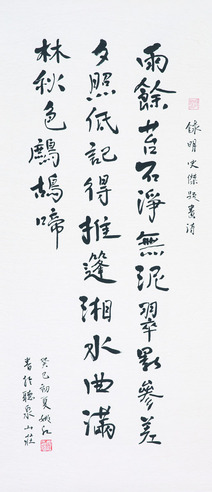 錄明史傑題畫詩
雨餘苔石淨無泥翠影參差
夕照低記得推篷湘水曲滿
林秋色鷓鴣啼
癸巳初夏姚
書於聽泉山莊